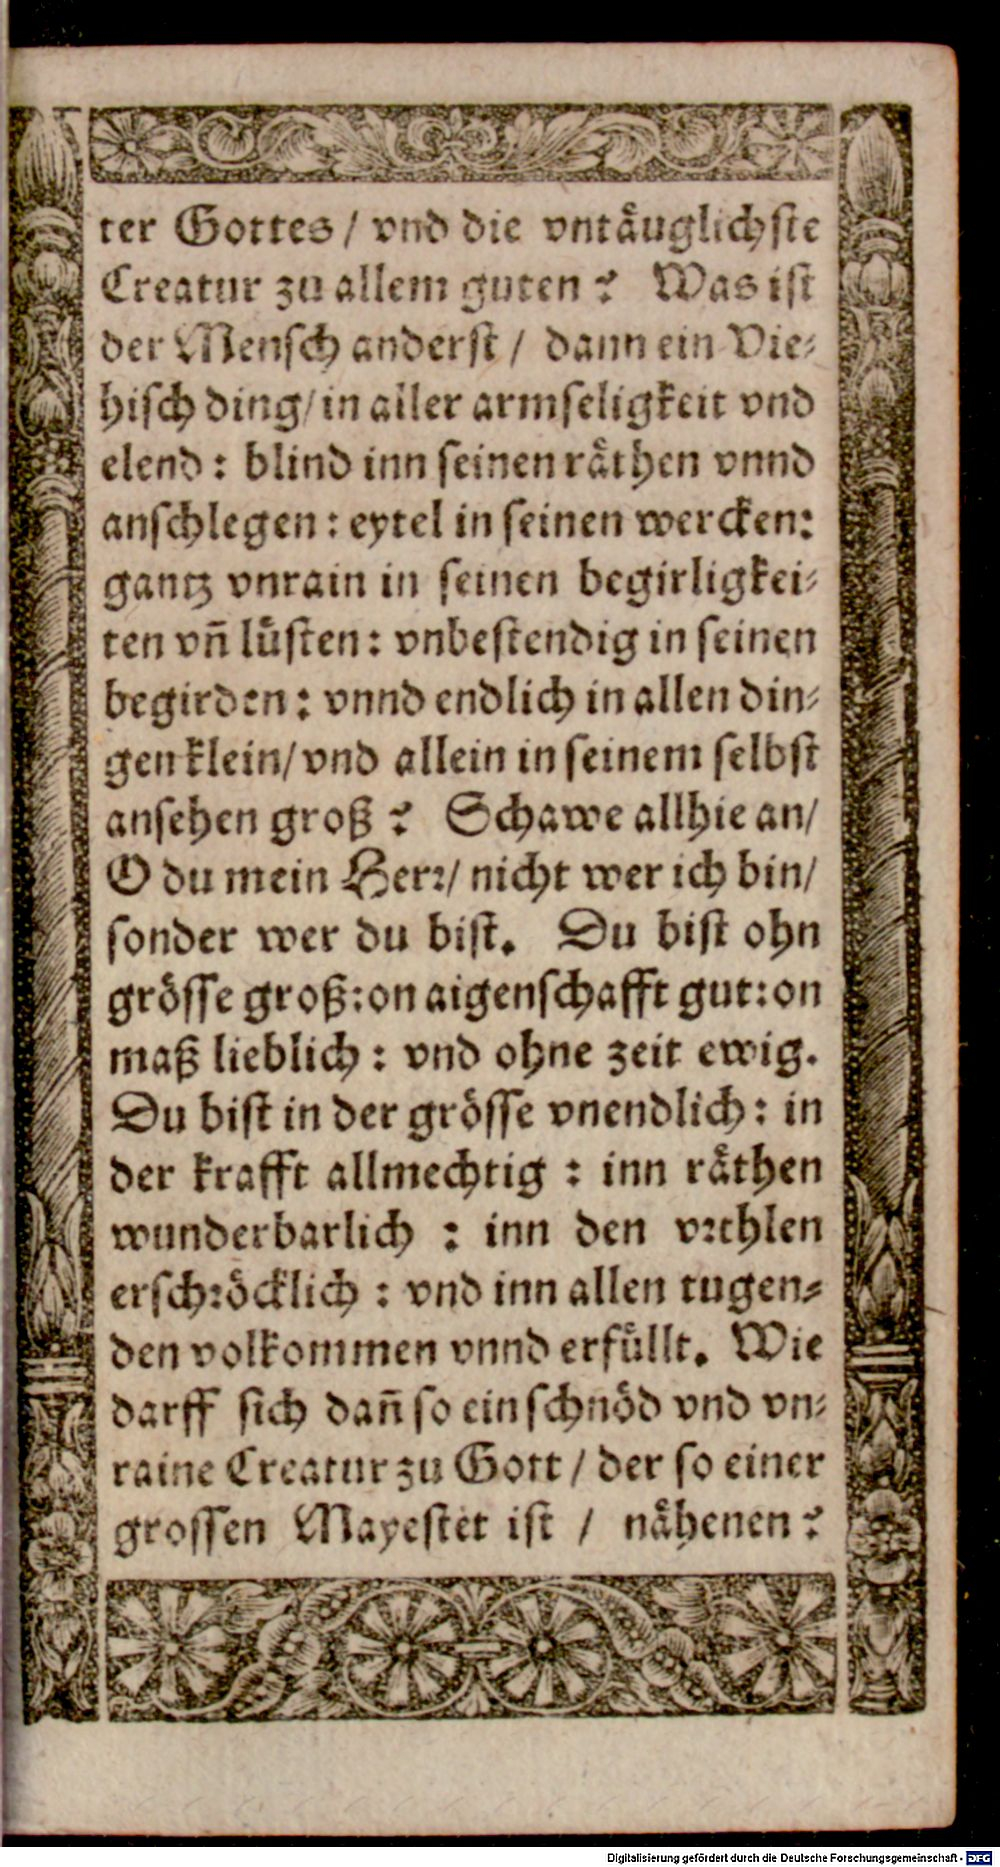 ter Gottes / vnd die vntäuglichste
Creatur zu allem guten? Was ist
der Mensch anderst / dann ein Vie-
hisch ding/ in aller armseligkeit vnd
elend: blind inn seinen räthen vnnd
anschlegen: eytel in seinen wercken:
gantz vnrain in seinen begirligkei-
ten vñ lüsten: vnbestendig in seinen
begirden: vnnd endlich in allen din-
gen klein/ vnd allein in seinem selbst
ansehen groß? Schawe allhie an/
O du mein Herr/ nicht wer ich bin/
sonder wer du bist. Du bist ohn
grösse groß: on aigenschafft gut: on
maß lieblich: vnd ohne zeit ewig.
Du bist in der grösse vnendlich: in
der krafft allmechtig: inn räthen
wunderbarlich: inn den vrthlen
erschröcklich: vnd inn allen tugen-
den volkommen vnnd erfüllt. Wie
darff sich dañ so ein schnöd vnd vn-
raine Creatur zu Gott / der so einer
grossen Mayestet ist / nähenen?
Digitalisierung gefördert durch die Deutsche Forschungsgemeinschaft - DFG